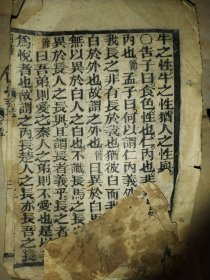 牛之性牛之性猶人之性與
○告子曰食色性也仁内也
内也 孟子曰何以謂仁内義外
我長之非有長於我也猶彼白而
白於外也故謂之外也 曰異於白
無以異於白人之白也不識長馬之
異於長人之長與且謂長者義乎長之
曰吾弟則愛之秦人之弟則不愛也是以
爲悅者也故謂之内長楚人之長亦長吾之長